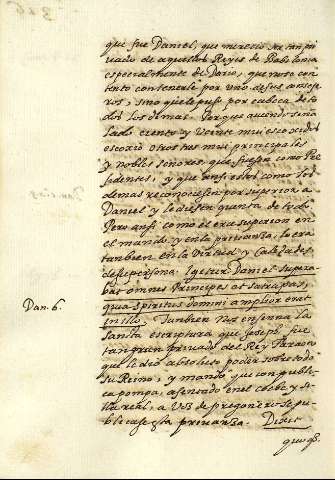 que fue Daniel, que merecio ser tan pri
uado de aquellos Reyes de Babilonia
especialmente de Dario, que no se con
tento con tenerle por uno de sus conseje
ros, sino que le puso por cabeça de to
dos los demas. Porque auiendo seña
lado ciento y Veinte mui escoxidos
escoxio otros tres mui principales
y nobles señores que fuesen como Pre
sidentes, y que assi estos como los
demas reconociesen por superior a
Daniel y le diesen quenta de todo.
Pero ansi como el era superior en
el mando y en la priuança, lo era
tambien en la Virtud y Calidades
de su persona. Igitur Daniel supera
bat omnes Principes et satrapas,
Dan. 6.
quia spiritus Domini amplior erat
in illo. Tambien nos enseña la
Santa escriptura que Joseph fue
tan gran priuado del Rey Faraon
que le dio absoluto poder sobre todo
su Reino, y mando que con publi
ca pompa, asentado en el coche y si
lla real, a Voz de pregonero se pu
blicase esta priuança. Dixit
quoq3.